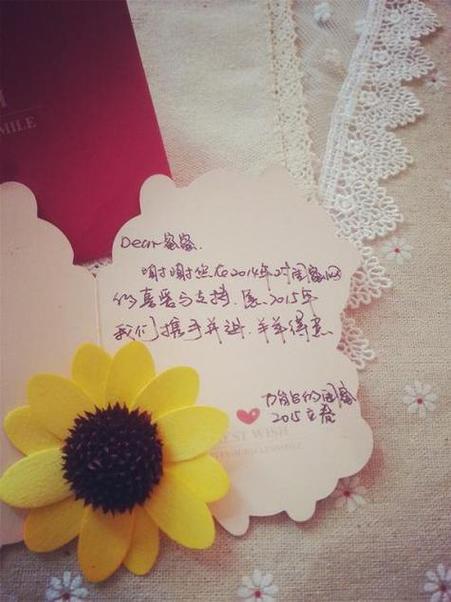 MILE
Dear 蜜蜜.
谢谢您在2014年对闺蜜网
的喜爱与支持.愿2015年
我们携手并进.羊羊得意
的闺蜜
2015立春
EST WISH